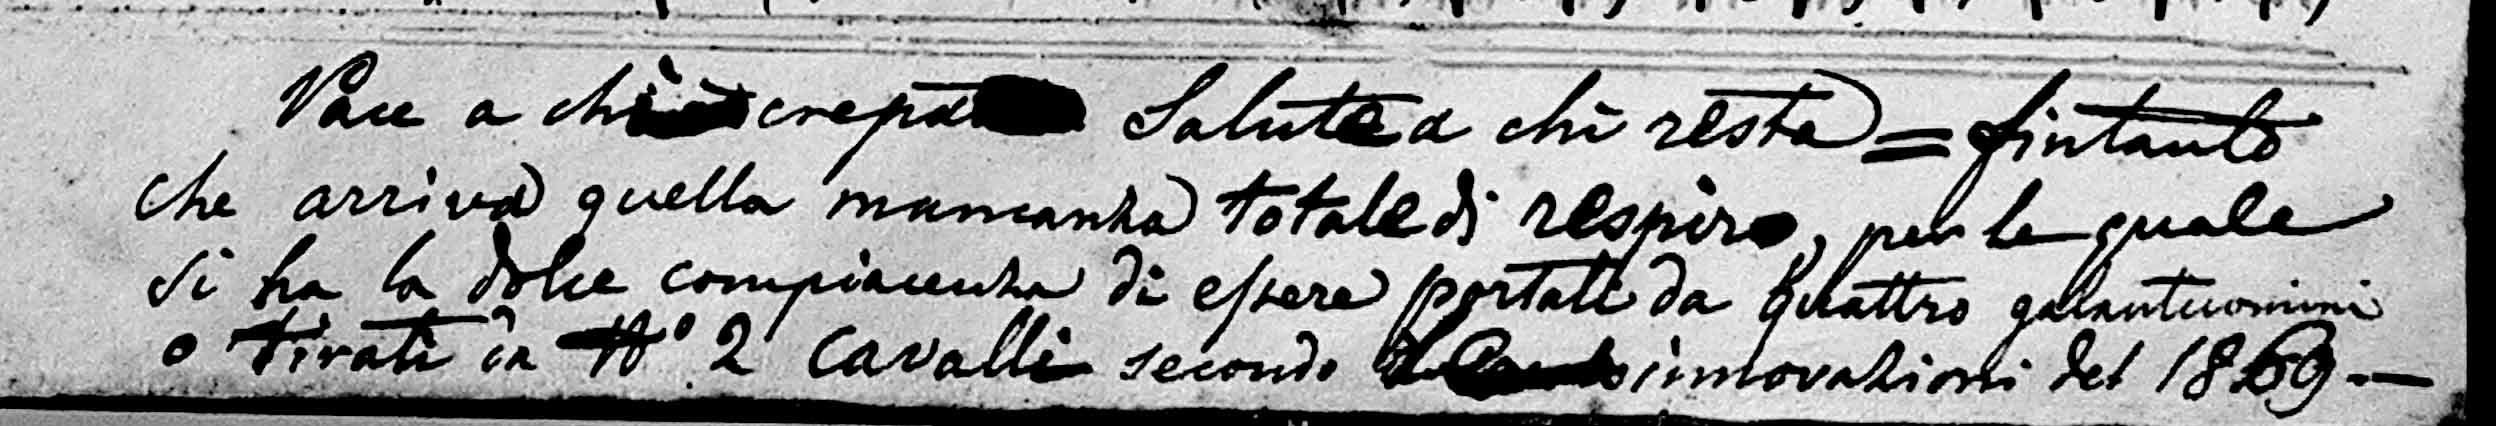 Pace a chi crepa Salute a chi resta = fintanto
che arriva quella mancanza totale di respiro, per le quale
si ha la dolce compiacenza di essere portati da quattro galantuomini
o tirati da N° 2 cavalli secondo innovazioni del 1869 —